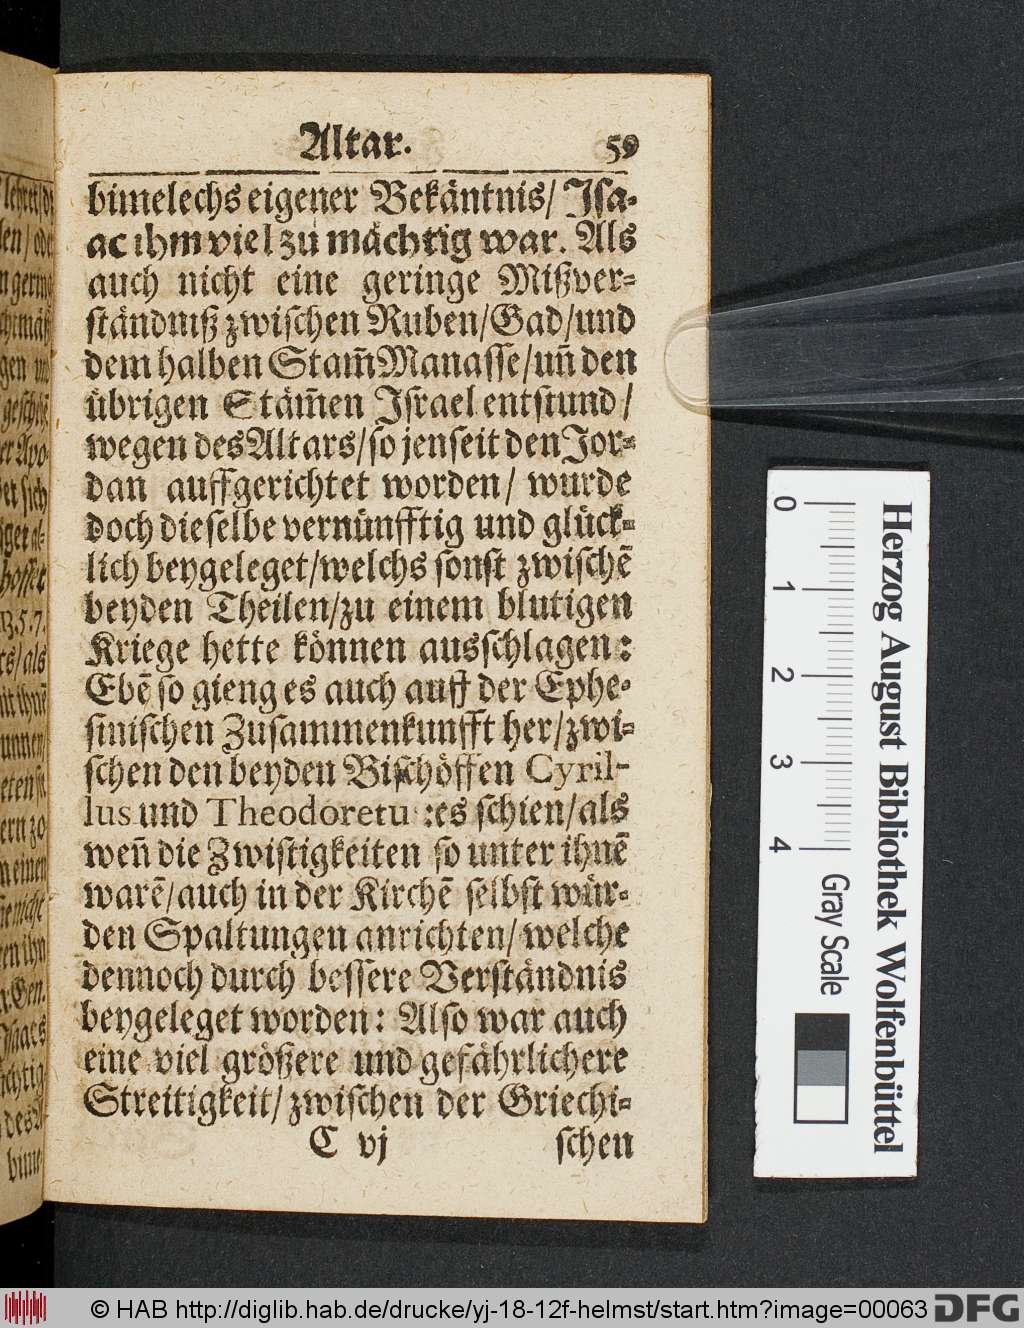 Altar. 59
bimelechs eigener Bekäntnis/ Isa-
ac ihm viel zu mächtig war. Als
auch nicht eine geringe Mißver-
ständniß zwischen Ruben/Gad/und
dem halben Stam̃ Manasse/uñ den
übrigen Stäm̃en Israel entstund/
wegen des Altars/so jenseit den Jor-
dan auffgerichtet worden/ wurde
doch dieselbe vernünfftig und glück-
lich beygeleget/welchs sonst zwischẽ
beyden Theilen/zu einem blutigen
Kriege hette können ausschlagen:
Ebẽ so gieng es auch auff der Ephe-
sinischen Zusammenkunfft her/zwi-
schen den beyden Bischöffen Cyril-
lus und Theodoretu :es schien/als
weñ die Zwistigkeiten so unter ihnẽ
warẽ/auch in der Kirchẽ selbst wür-
den Spaltungen anrichten/ welche
dennoch durch bessere Verständnis
beygeleget worden: Also war auch
eine viel größere und gefährlichere
Streitigkeit/ zwischen der Griechi-
C vj schen
0 1 2 3 4
Gray Scale
Herzog August Bibliothek Wolfenbüttel
© HAB http://diglib.hab.de/drucke/yj-18-12f-helmst/start.htm?image=00063
DFG